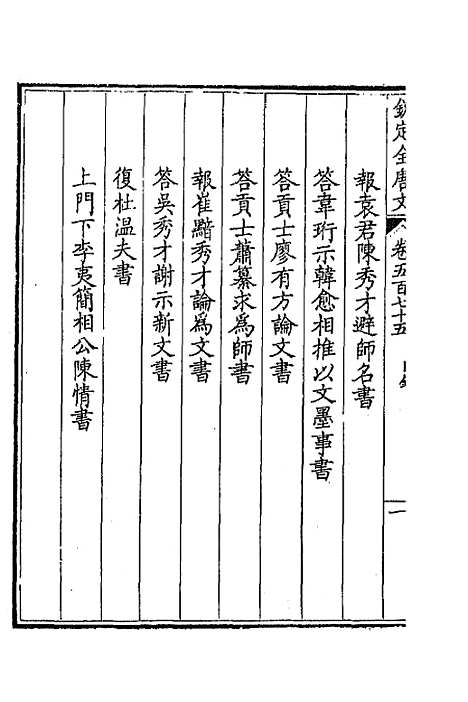 欽定全唐文 卷五百七十五 目錄 一
報袁君陳秀才避師名書
答韋珩示韓愈相推以文墨事書
答貢士廖有方論文書
答貢士蕭纂求為師書
報崔黯秀才論為文書
答吳秀才謝示新文書
復杜溫夫書
上門下李夷簡相公陳情書